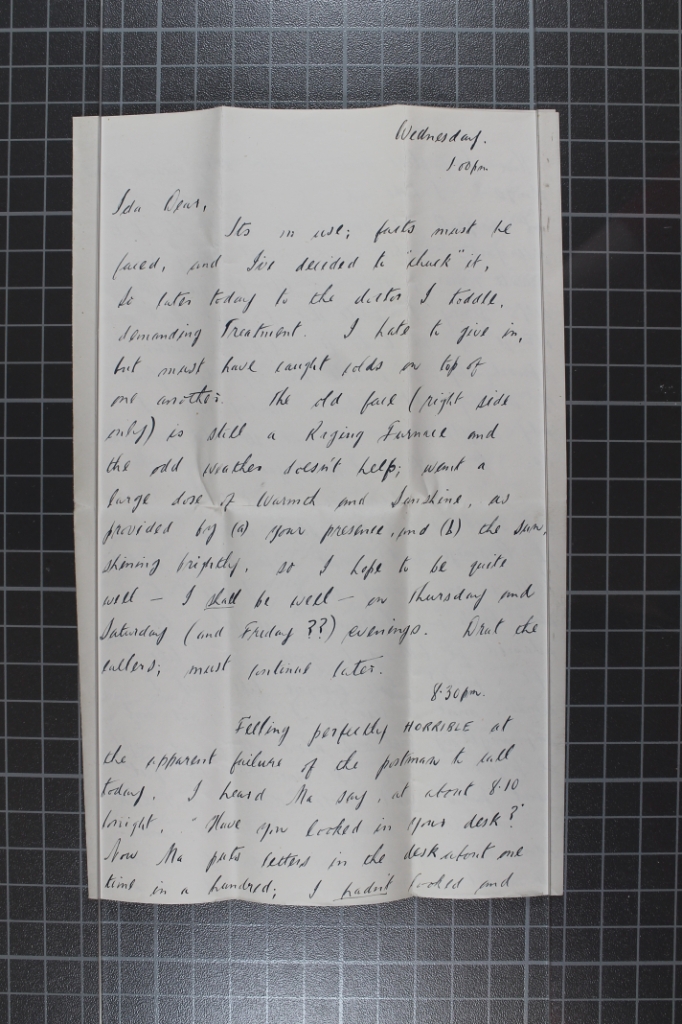 Wednesday.
1.00pm
Ida Dear,
Its no use; facts must be
faced, and I've decided to "chuck" it,
So later today to the doctor I toddle,
demanding Treatment. I hate to give in,
but must have caught colds on top of
one another. The old face (right side
only) is still a Raging Furnace and
the odd weather doesn't help; want a
large dose of Warmth and Sunshine, as
provided by (a) your presence, and (b) the sun,
shining brightly. So I hope to be quite
well — I shall be well — on Thursday and
Saturday (and Friday ??) evenings. Drat the
callers; must continue later.
8.30pm.
Felling perfectly HORRIBLE at
the apparent failure of the postman to call
today. I heard Ma say, at about 8.10
tonight, "Have you looked in your desk?"
Now Ma puts letters in the desk about one
time in a hundred; I hadn't looked and